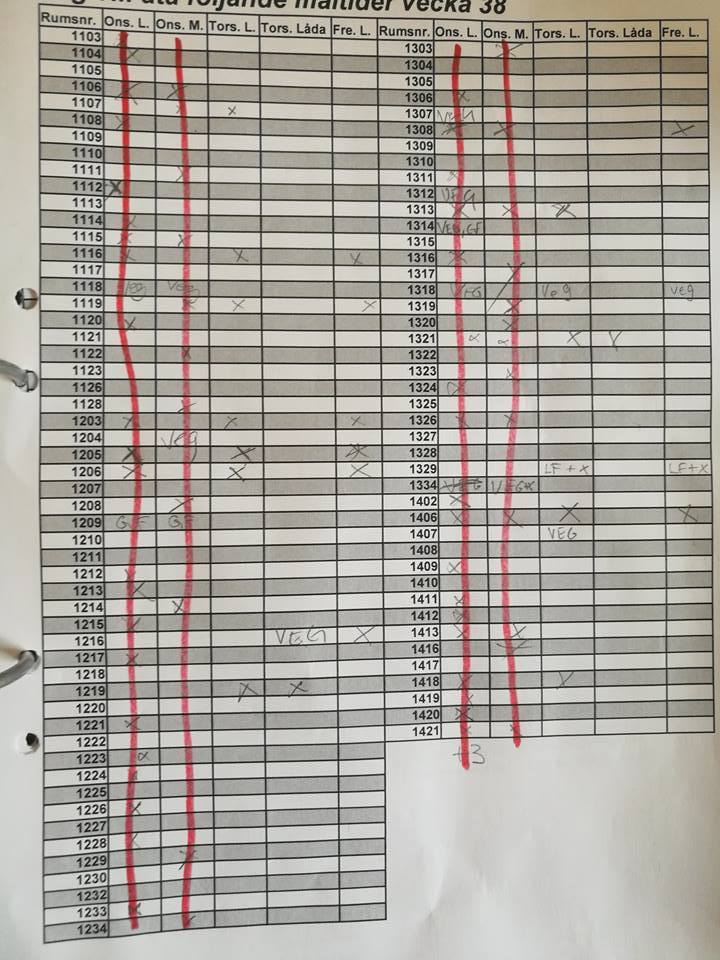 äta följande måltider vecka 38
Rumsnr. Ons. L. Ons. M. Tors. L. Tors. Låda Fre. L.
1103 X
1104 X
1105
1106 X X
1107 x
1108 X
1109
1110
1111 X
1112 X
1113
1114 X
1115 X X
1116 X X X
1117
1118 Veg Veg
1119 X X X
1120 X
1121
1122 X
1123
1126
1128 X
1203 X X X
1204 Veg
1205 X X X
1206 X X X
1207
1208 X
1209 GF GF
1210
1211
1212 X
1213 X
1214 X
1215 X
1216 VEG X
1217 X
1218
1219 X X
1220
1221 X
1222
1223 X
1224
1225
1226 X
1227
1228 X
1229 X
1230
1232
1233 X
1234 X
Rumsnr. Ons. L. Ons. M. Tors. L. Tors. Låda Fre. L.
1303 X
1304
1305
1306 X
1307 VEG
1308 X X X
1309
1310
1311 X
1312 VEG
1313 X X X
1314 VEG, GF
1315
1316 X
1317 X
1318 VEG / Veg veg
1319 X
1320 X
1321 X X X X
1322
1323 X
1324 X
1325
1326 X X
1327
1328
1329 LF + X LF + X
1334 VEG VEGX
1402 X
1406 X X X X
1407 VEG
1408
1409 X
1410
1411 X
1412 X
1413 X X
1416 X
1417
1418 X X
1419 X
1420 X
1421 X X
+3